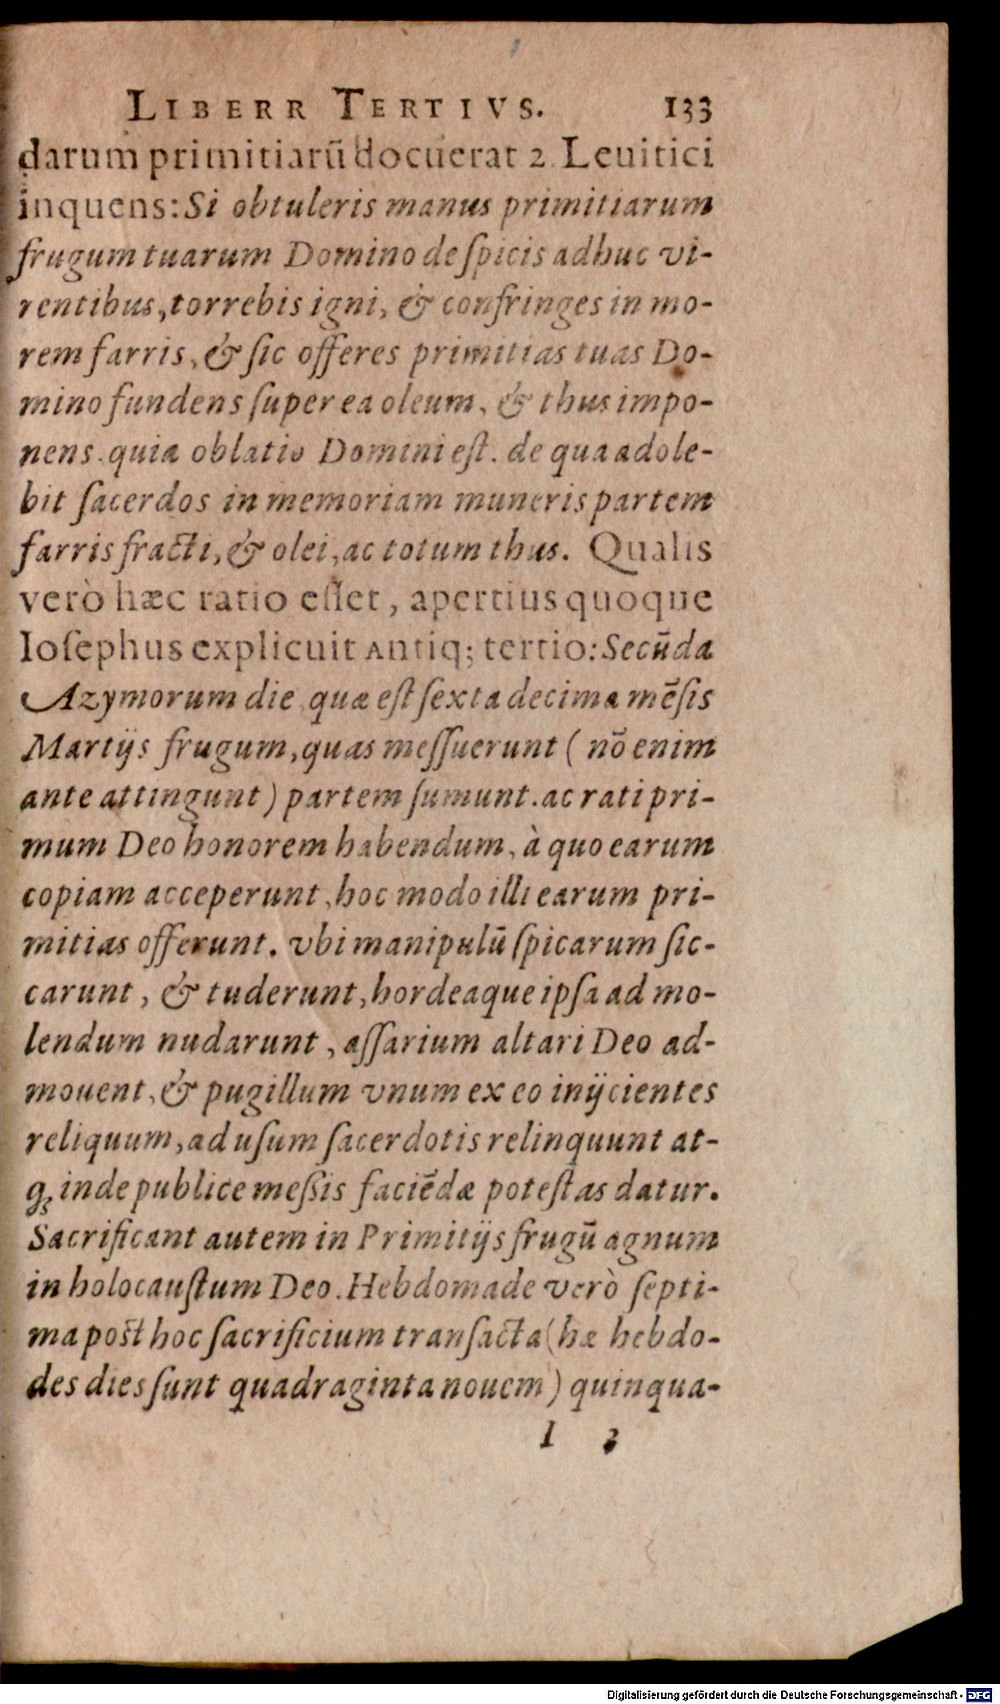 LIBERR TERTIVS. 133
darum primitiarū docuerat 2. Leuitici
inquens: Si obtuleris manus primitiarum
frugum tuarum Domino de ſpicis adhuc vi-
rentibus, torrebis igni, & confringes in mo-
rem farris, & ſic offeres primitias tuas Do-
mino fundens ſuper ea oleum, & thus impo-
nens. quia oblatio Domini eſt. de qua adole-
bit ſacerdos in memoriam muneris partem
farris fracti, & olei, ac totum thus. Qualis
verò hæc ratio eſſet, apertius quoque
Ioſephus explicuit Antiq; tertio: Secūda
Azymorum die quæ eſt ſexta decima mēſis
Martijs frugum, quas meſſuerunt ( nō enim
ante attingunt ) partem ſumunt. ac rati pri-
mum Deo honorem habendum, à quo earum
copiam acceperunt, hoc modo illi earum pri-
mitias offerunt. vbi manipulū ſpicarum ſic-
carunt, & tuderunt, hordeaque ipſa ad mo-
lendum nudarunt, aſſarium altari Deo ad-
mouent, & pugillum vnum ex eo inijcientes
reliquum, ad uſum ſacerdotis relinquunt at-
q; inde publice meſsis faciēdæ poteſtas datur.
Sacrificant autem in Primitijs frugū agnum
in holocauſtum Deo. Hebdomade verò ſepti-
ma poſt hoc ſacrificium tranſacta (hæ hebdo-
des dies ſunt quadraginta nouem ) quinqua-
I 3
Digitalisierung gefördert durch die Deutsche Forschungsgemeinschaft - DFG